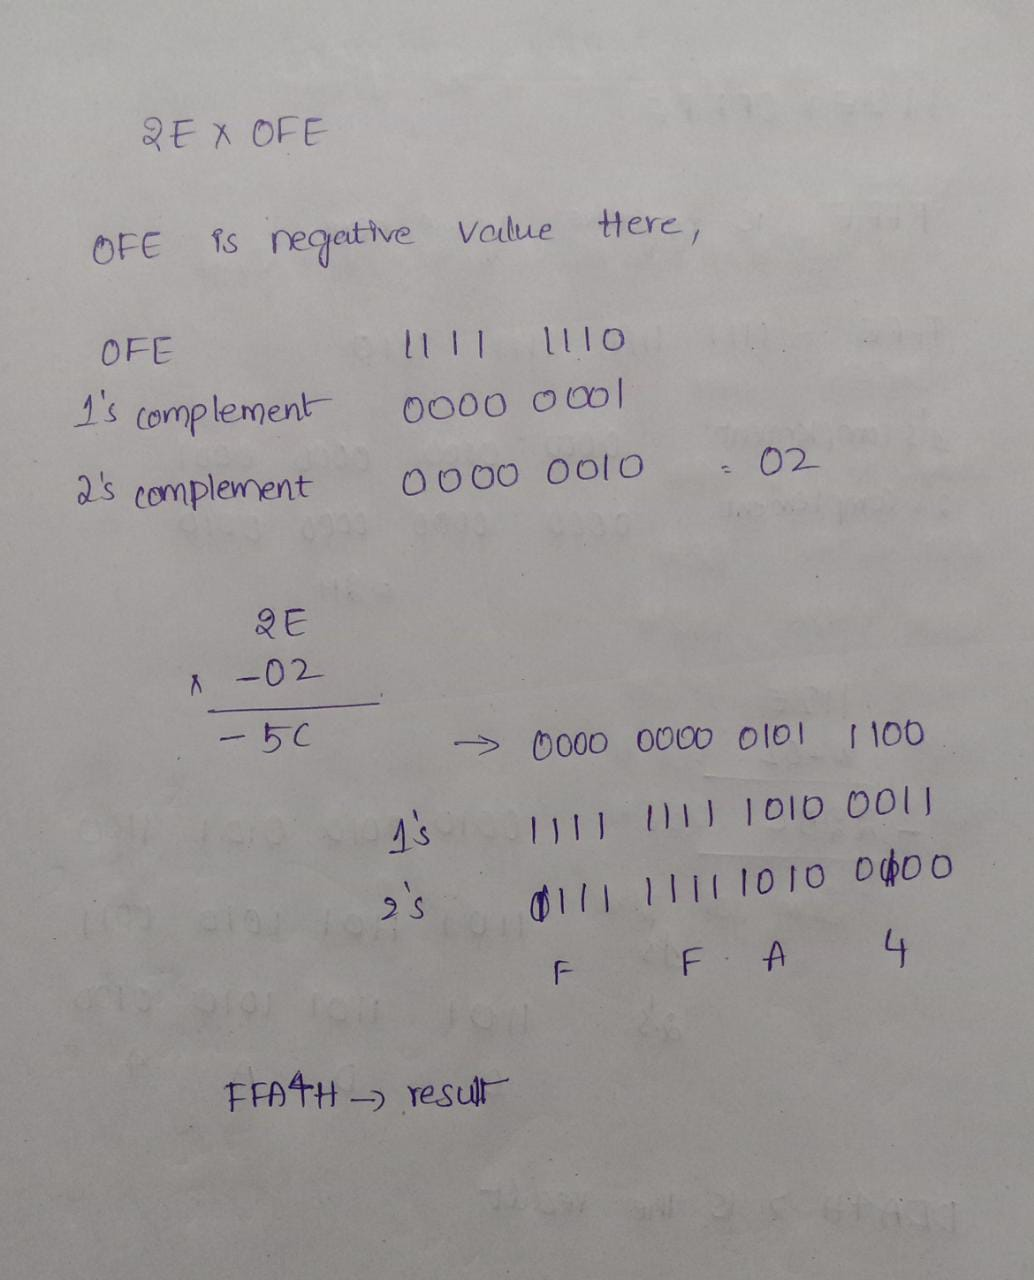 2E X OFE
OFE is negative value Here,
OFE 1111 1110
1's complement 0000 0001
2's complement 0000 0010 = 02
2E
x -02
- 5C → 0000 0000 0101 1100
1's 1111 1111 1010 0011
2's 1111 1111 1010 0100
F F A 4
FFA4H → result